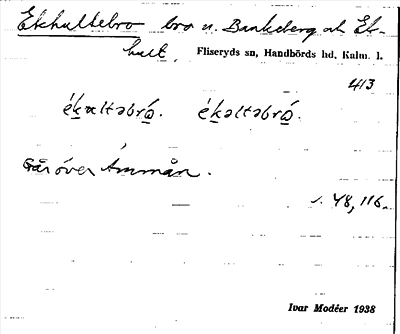 Ekhultebro bro n. Banketorg och Ek-
hult, Fliseryds sn, Handbörds hd, Kalm. l.
413
ék̲ɷltəbrώ̲. ék̲əltəbrώ̲.
Går över Åmmån.
s. 48, 116.
Ivar Modéer 1938